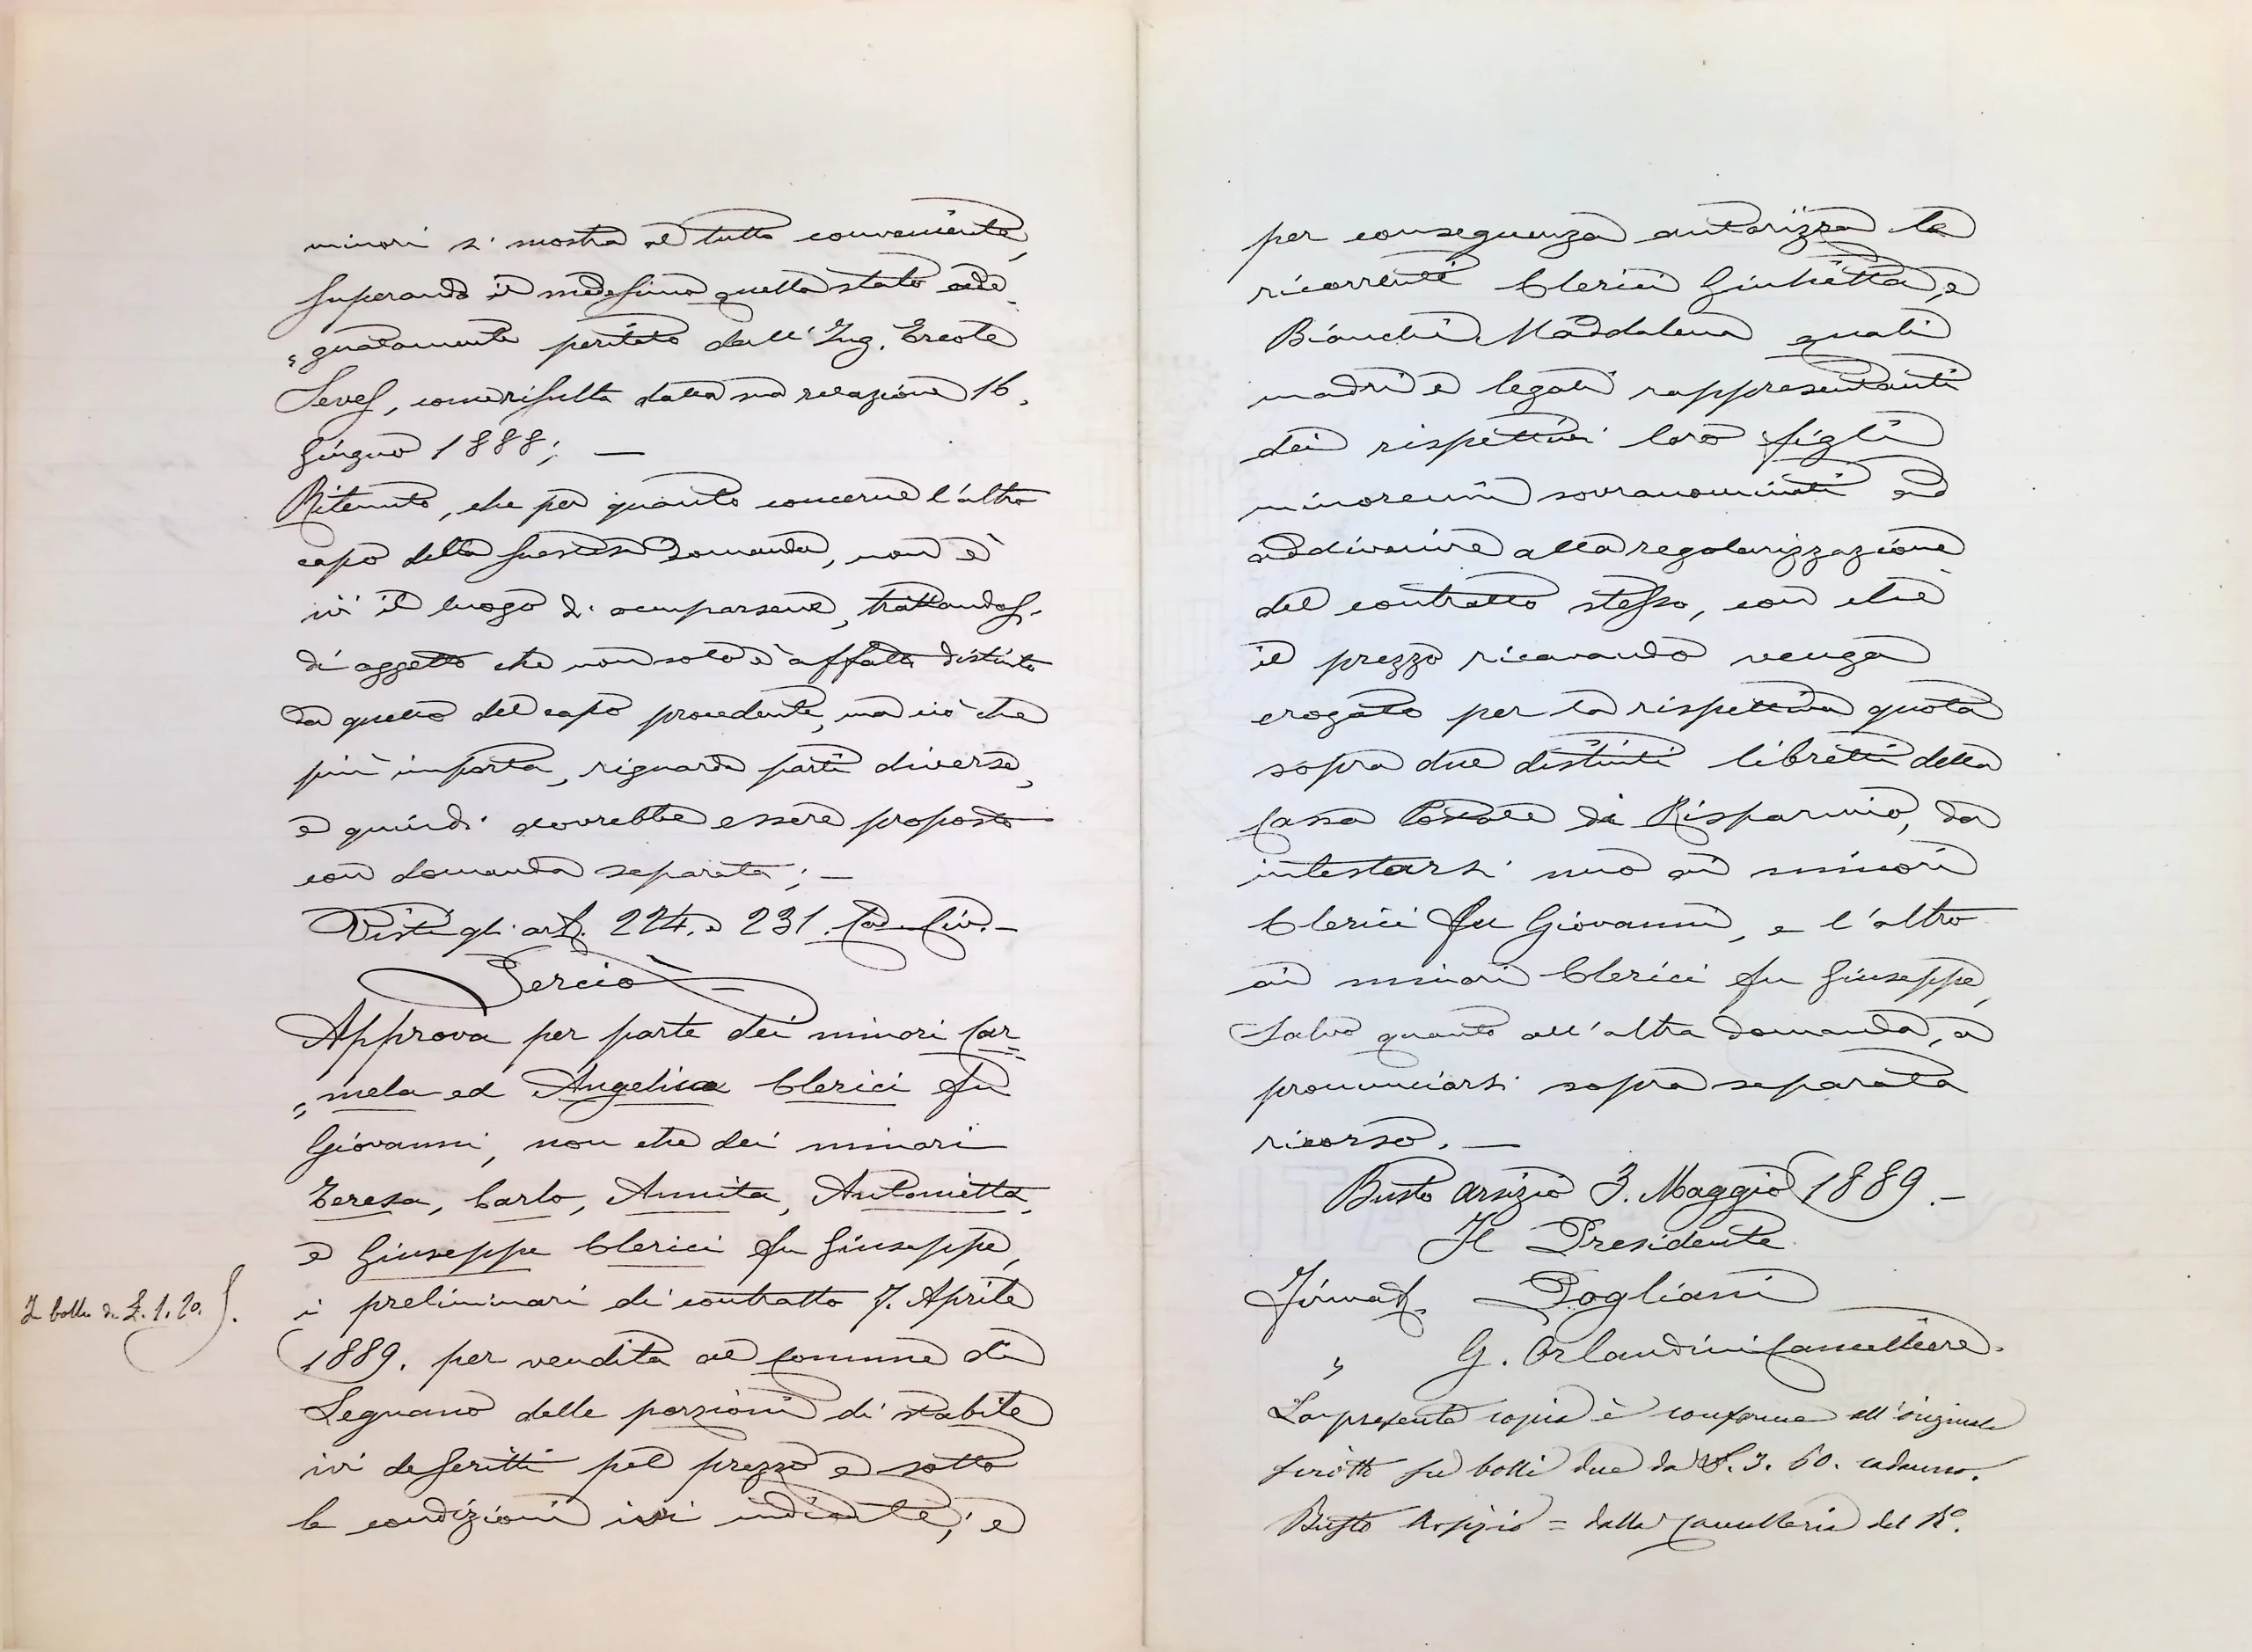 minori si mostra al tutto conveniente,
superando il medesimo quello stato ade-
"guatamente peritato dall'Ing. Ercole
Seves, come risulta dalla sua relazione 16.
Giugno 1888; —
Ritenuto, che per quanto concerne l'altro
capo della suestesa domanda, non è
ivi il luogo di occuparsene, trattandosi
di oggetto che non solo è affatto distinto
da quello del capo precedente, ma ciò che
più importa, riguarda parti diverse,
e quindi dovrebbe essere proposto
con domanda separata; —
Visti gli art. 224. e 231. Cod. Civ. —
Perciò —
Approva per parte dei minori Car=
"mela ed Angelica Clerici fu
Giovanni, non che dei minori
Teresa, Carlo, Annita, Antonietta,
e Giuseppe Clerici fu Giuseppe,
i preliminari di contratto 7. Aprile
In bollo da £. 1. 20.
1889. per vendita al Comune di
Legnano delle porzioni di stabile
ivi descritti pel prezzo e sotto
le condizioni ivi indicate; e
per conseguenza autorizza le
ricorrenti Clerici Giulietta, e
Bianchi Maddalena quali
madri e legali rappresentanti
dei rispettivi loro figli
minorenni sovranominati ad
addivenire alla regolarizzazione
del contratto stesso, con che
il prezzo ricavando venga
erogato per la rispettiva quota
sopra due distinti libretti della
Cassa Postale di Risparmio, da
intestarsi uno ai minori
Clerici fu Giovanni, e l'altro
ai minori Clerici fu Giuseppe,
Salvo quanto all'altra domanda, a
pronunciarsi sopra separata
ricorso. —
Busto Arsizio 3. Maggio 1889. —
Il Presidente
Firmat. Pogliani
" G. Orlandini Cancelliere.
La presente copia è conforme all'originale
scritto su bolli due da £. 3. 60. cadauno.
Busto Arsizio = dalla Cancelleria del R.º